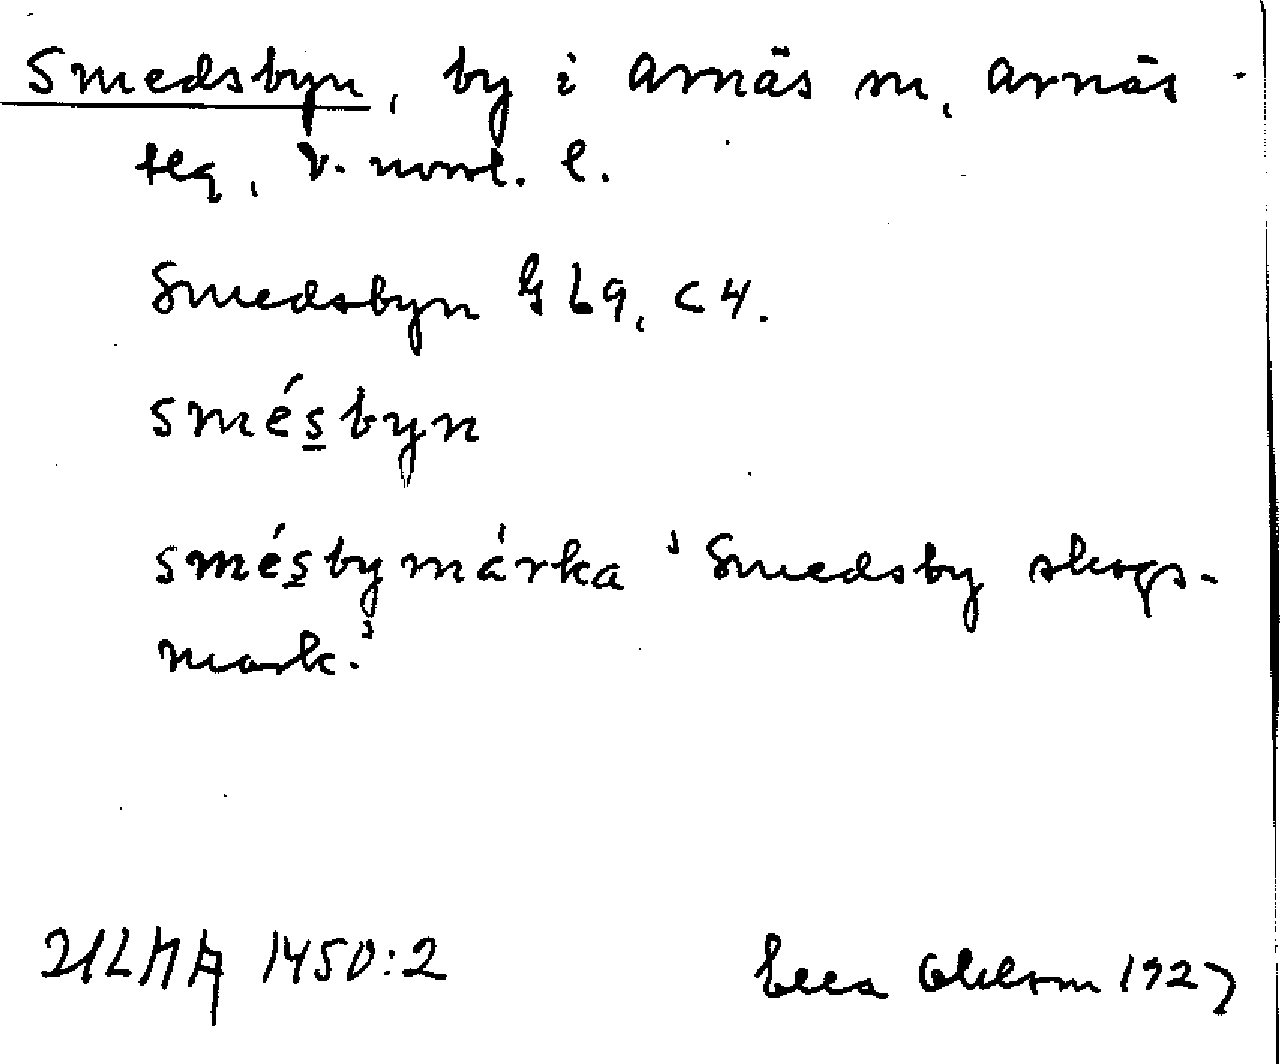 Smedsbyn, by i Arnäs sn, Arnäs
tlg, V. norrl. l.
Smedsbyn G L9, C4.
smésbyn
smésbymárka 'Smedsby skogs-
mark.'
ULMA 1450:2 1927